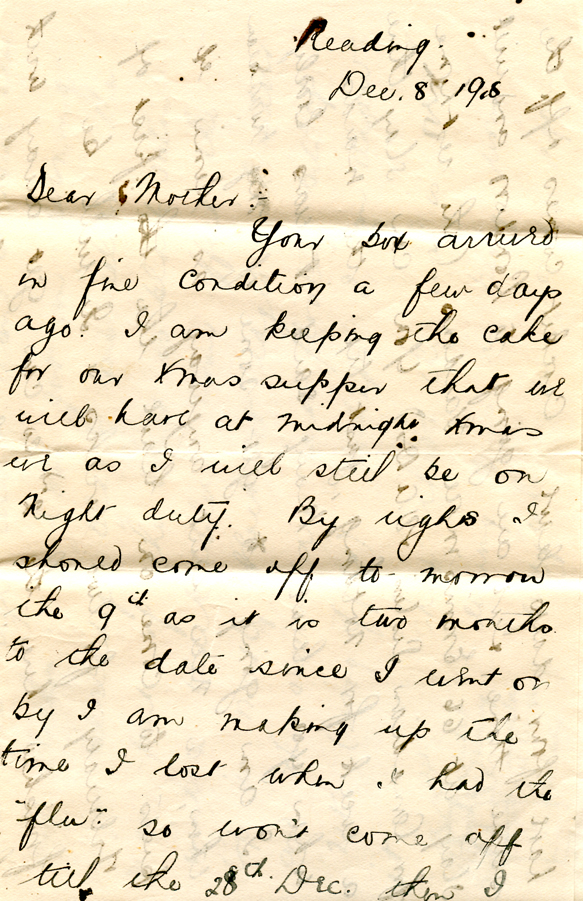 Reading.
Dec. 8 1918
Dear Mother:-
Your box arrived
in fine condition a few days
ago. I am keeping the cake
for our Xmas supper that we
will have at midnight Xmas
eve as I will still be on
Night duty. By rights I
should come off to-morrow
the 9th as it is two months
to the date since I went on
by I am making up the
time I lost when I had the
"flu" so won't come off
till the 28th Dec. then I